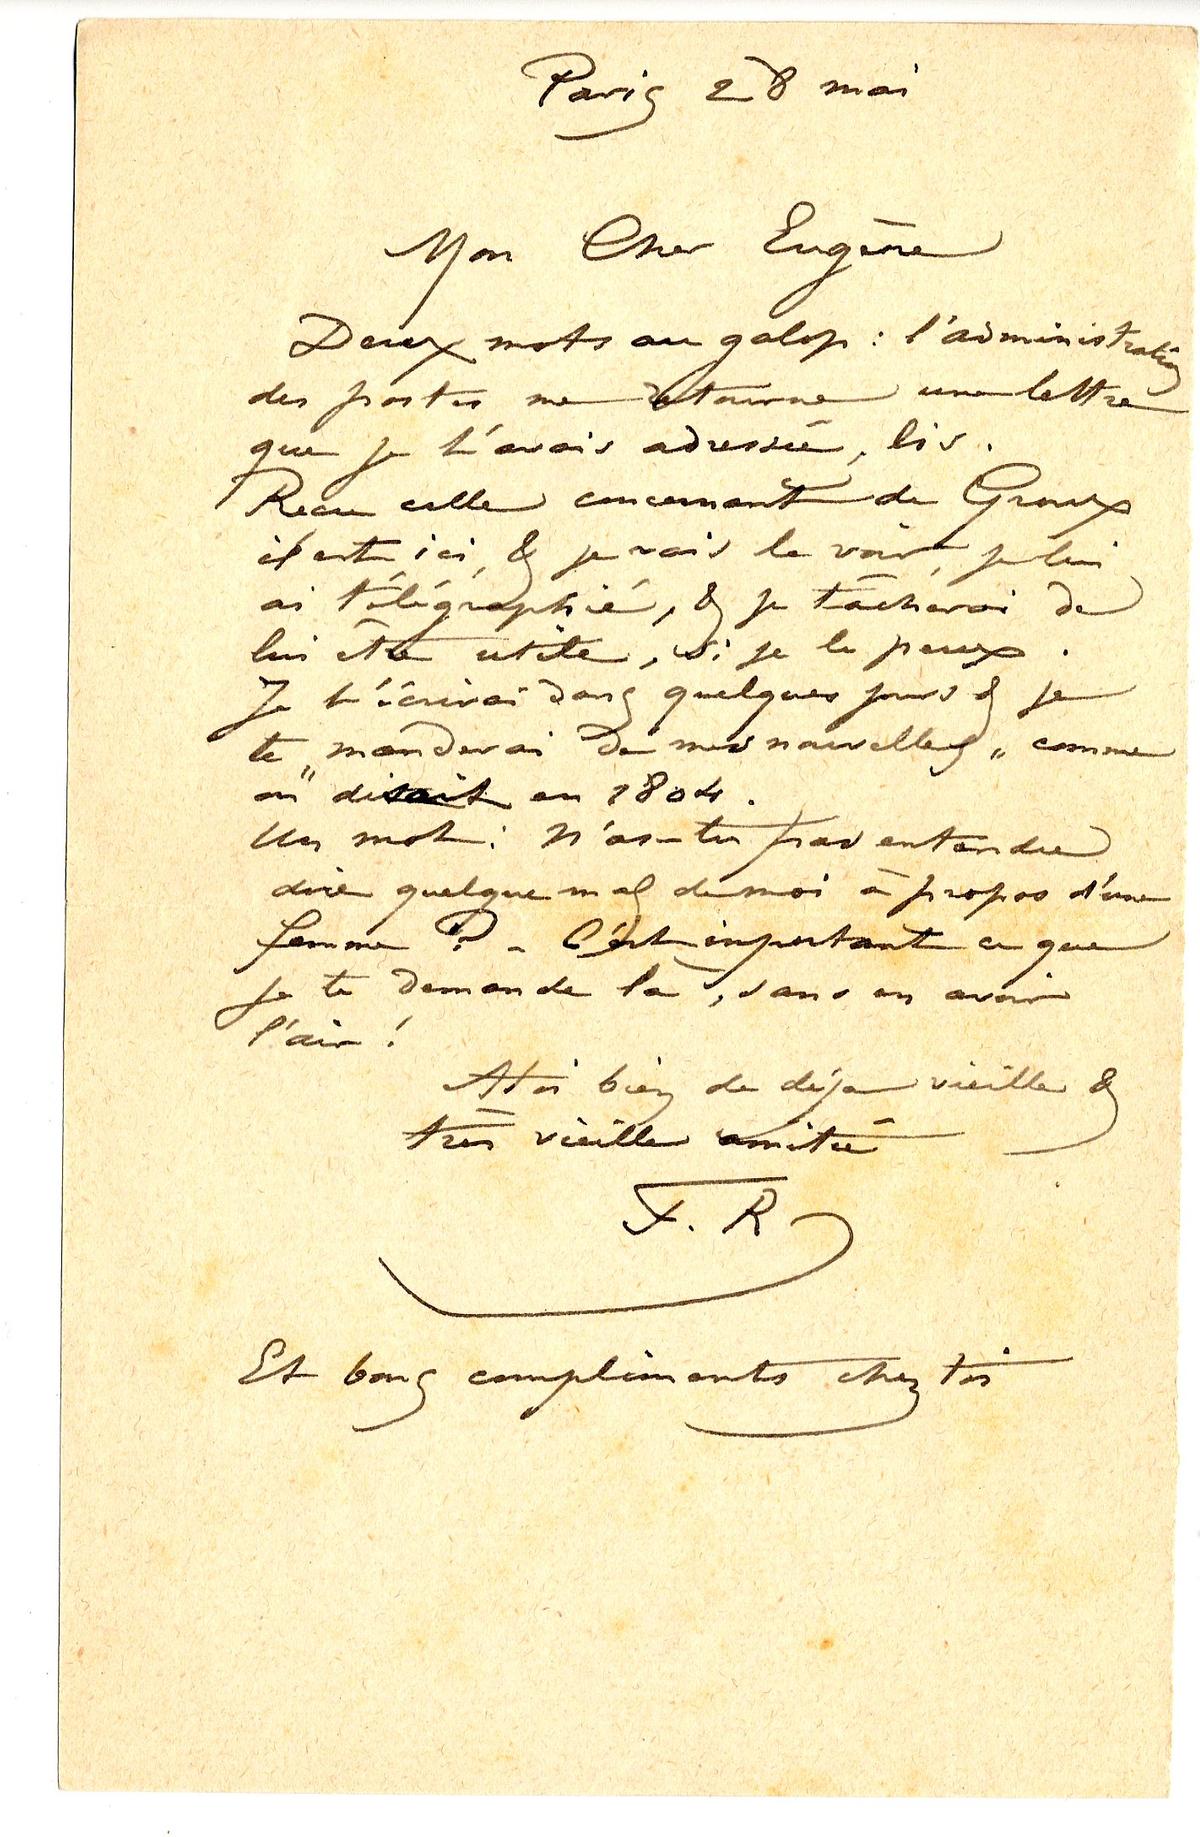 Paris 28 mai
Mon Cher Eugène
Deux mots au galop : l'administration
des postes me retourne une lettre
que je t'avais adressée, lis.
Recu celle concernant de Groux
il est ici, & je vais le voir, je lui
ai télégraphié, & je tâcherai de
lui être utile, si je le peux.
Je t'écrirai dans quelques jours & je
te „ manderai de mes nouvelles „ comme
on disait en 1804.
Un mot : N'as-tu pas entendu
dire quelque mal de moi à propos d'une
femme ? – C'est important ce que
je te demande là, sans en avoir
l'air !
A toi bien de déja vieille &
très vieille amitié
F. R
Et bons compliments chez toi